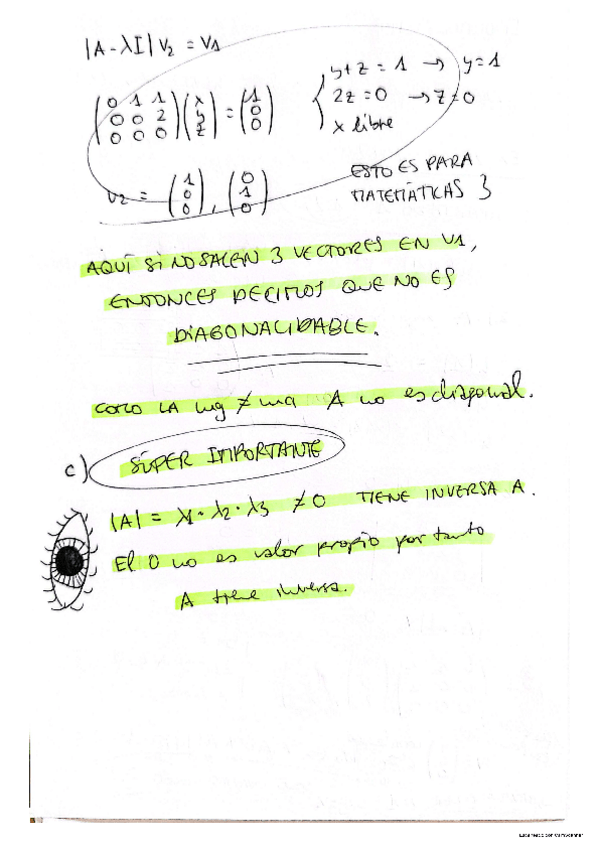 |A - λI| v₂ = v₁
(0 1 1; 0 0 2; 0 0 0) (x; y; z) = (1; 0; 0) { y+z = 1 → y = 1
2z = 0 → z = 0
x libre
v₂ = (1; 0; 0), (0; 1; 0)
ESTO ES PARA
MATEMÁTICAS 3
AQUÍ SI NO SALEN 3 VECTORES EN V1,
ENTONCES DECIMOS QUE NO ES
DIAGONALIZABLE.
COMO LA mg ≠ ma A no es diagonal.
c) SÚPER IMPORTANTE
|A| = λ1 · λ2 · λ3 ≠ 0 TIENE INVERSA A.
El 0 no es valor propio por tanto
A tiene inversa.